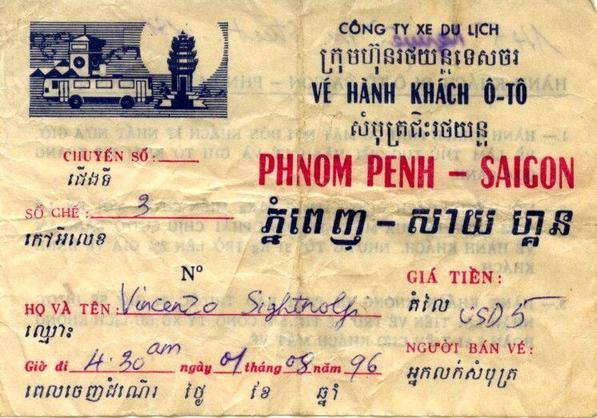 CÔNG TY XE DU LỊCH
ក្រុមហ៊ុនរថយន្ដទេសចរ
VÉ HÀNH KHÁCH Ô-TÔ
សំបុត្រជិះរថយន្ដ
PHNOM PENH – SAIGON
ភ្នំពេញ – សាយហ្គន
CHUYẾN SỐ:
ជើងទី
SỐ GHẾ: 3
កៅអីលេខ
Nº
HỌ VÀ TÊN: Vincenzo
ឈ្មោះ
GIÁ TIỀN:
តំលៃ USD5
NGƯỜI BÁN VÉ:
អ្នកលក់សំបុត្រ
Giờ đi 4.30am ngày 01 tháng 08 năm 96
ពេលចេញដំណើរ ថ្ងៃ ខែ ឆ្នាំ